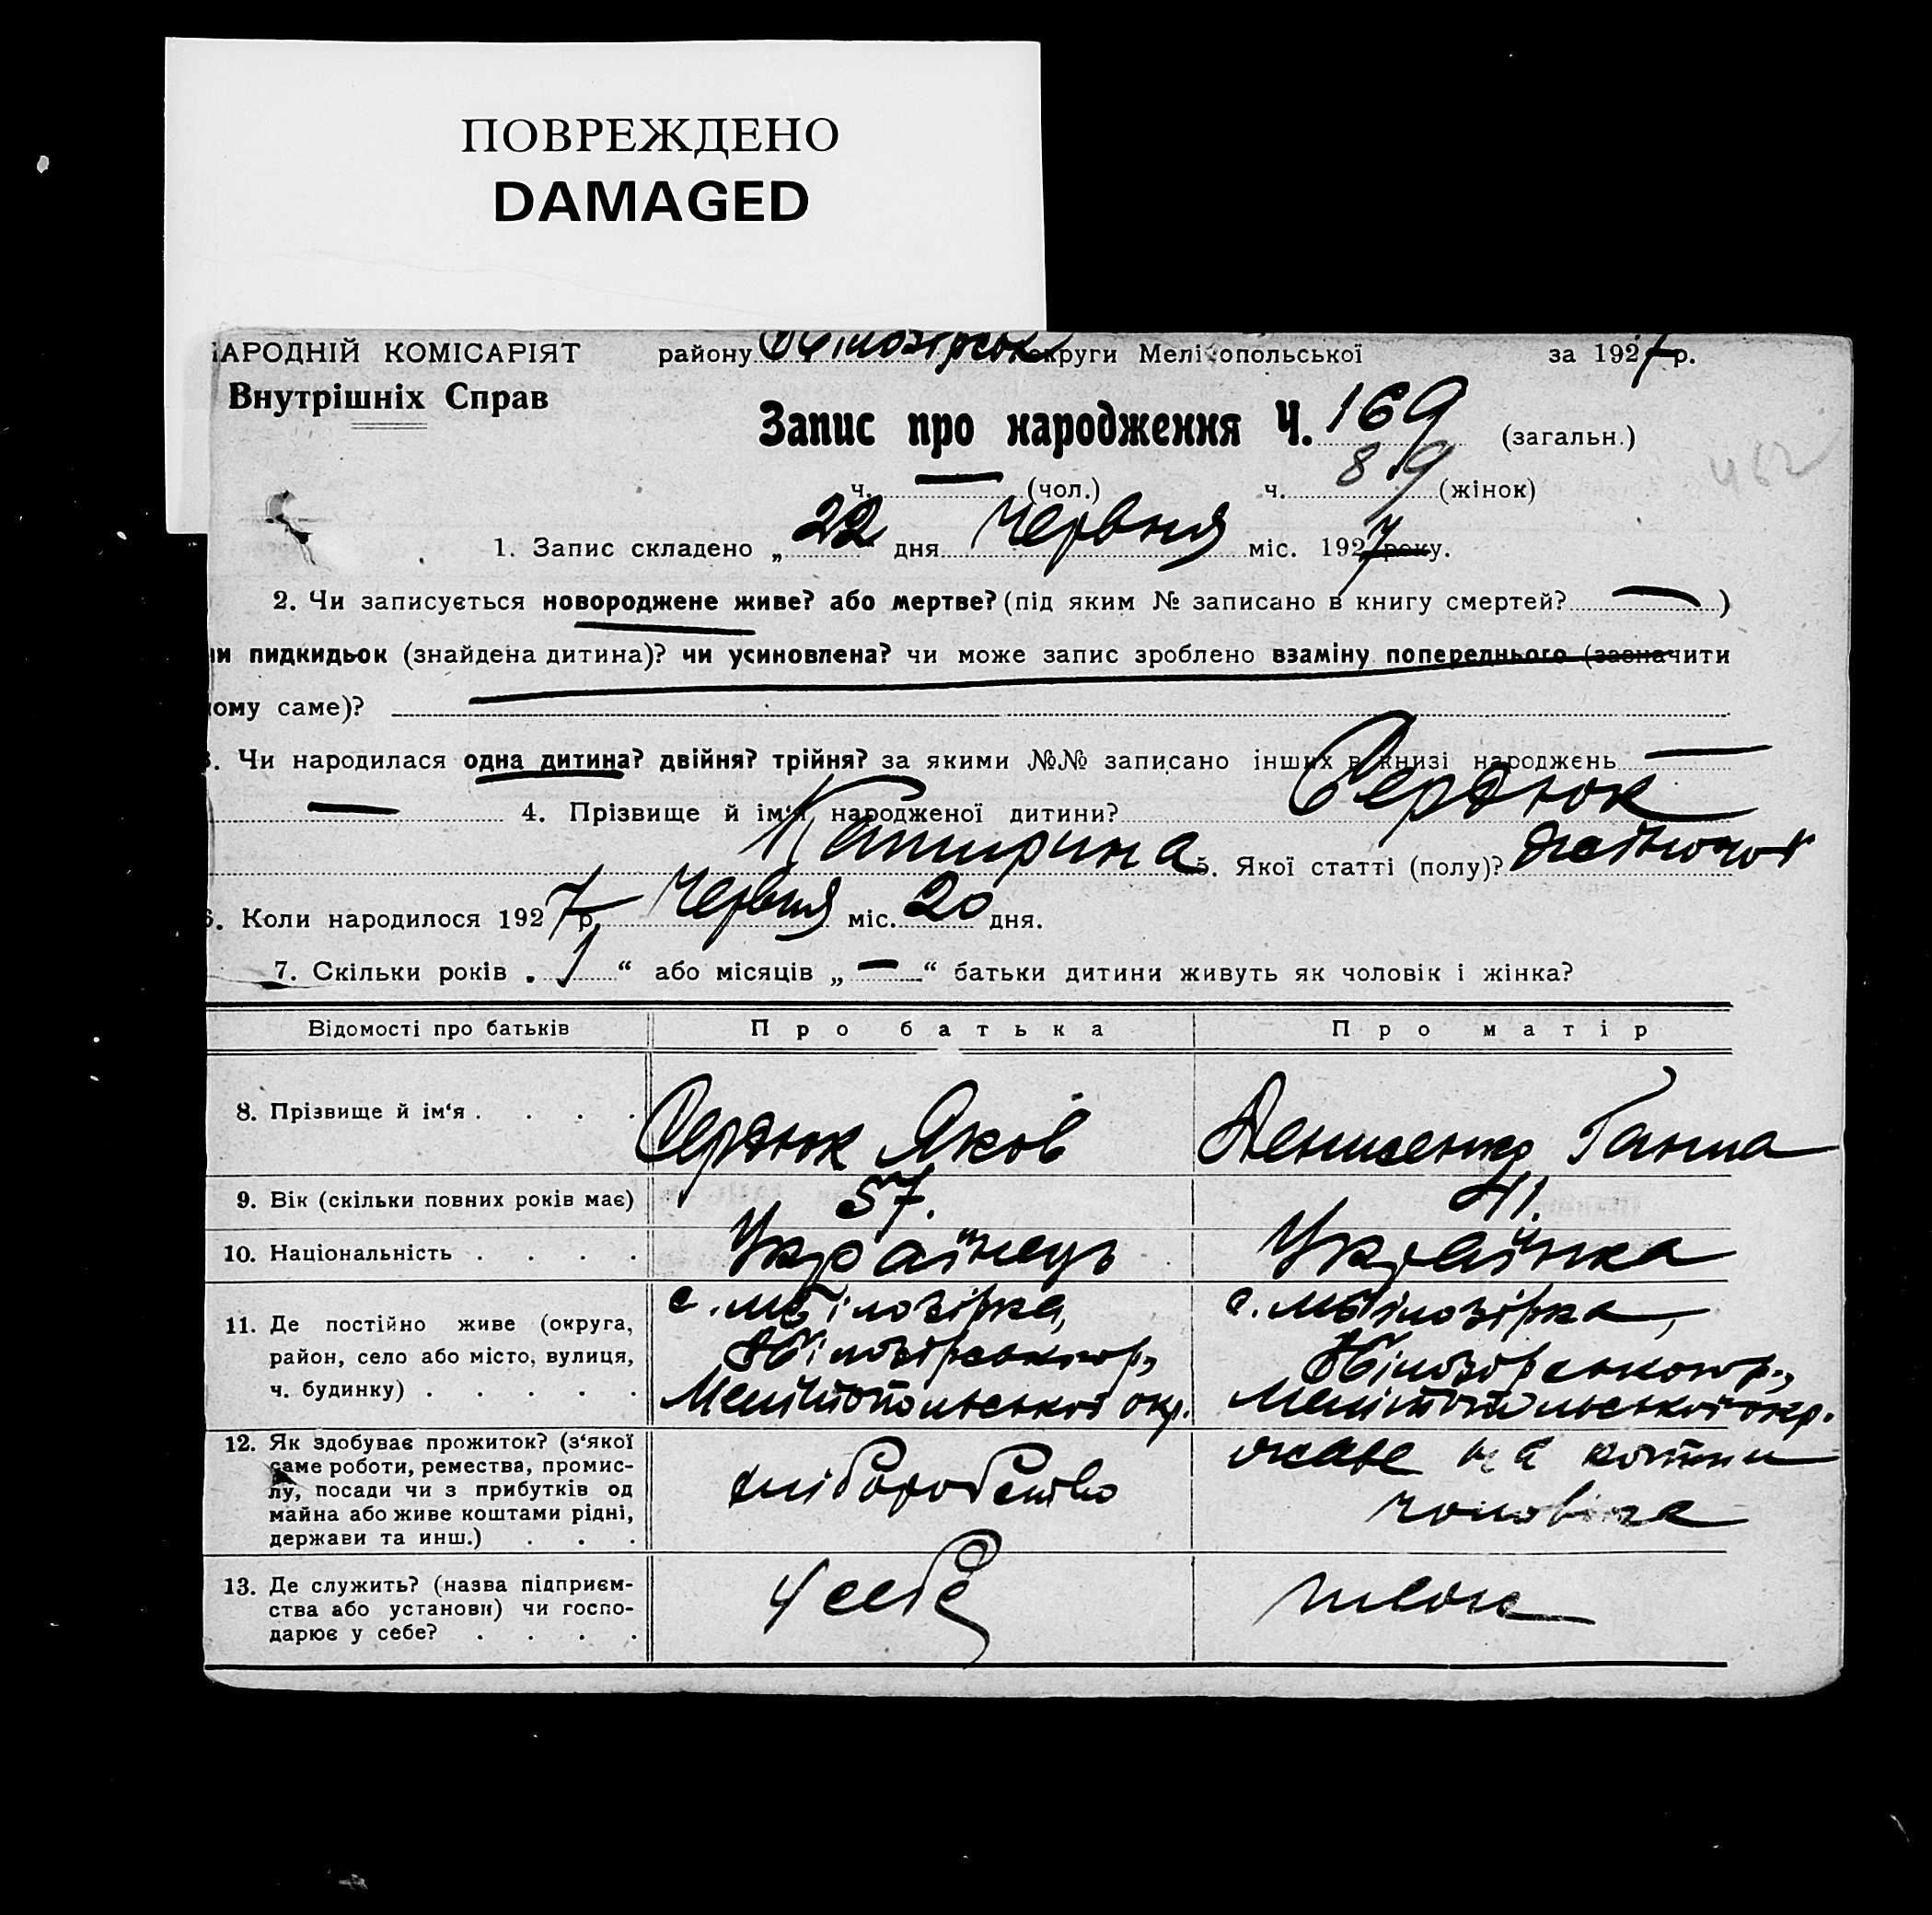 ПОВРЕЖДЕНО
DAMAGED
АРОДНІЙ КОМІСАРІЯТ району округи Мелітопольської за 1927 р.
Внутрішніх Справ
Запис про народження Ч. 169 (загальн.)
462
ч. — (чол.) ч. 89 (жінок)
1. Запис складено „ 22 " дня Червня міс. 1927 року.
2. Чи записується новороджене живе? або мертве? (під яким № записано в книгу смертей? — )
и пидкидьок (знайдена дитина)? чи усиновлена? чи може запис зроблено взаміну попереднього (зазначити
ому саме)?
3. Чи народилася одна дитина? двійня? трійня? за якими №№ записано інших в книзі народжень —
— 4. Прізвище й ім‘я народженої дитини? Сердюк
Катирина 5. Якої статті (полу)? жіночої
6. Коли народилося 1927 р. Червня міс. 20 дня.
7. Скільки років „ 1 “ або місяців „ — “ батьки дитини живуть як чоловік і жінка?
Відомості про батьків Про батька Про матір
8. Прізвище й ім‘я . . . . Сердюк Яков Денисенко Ганна
9. Вік (скільки повних років має) 57. 41.
10. Національність . . . . Українець Українка
11. Де постійно живе (округа,
район, село або місто, вулиця,
ч. будинку) . . . . .
с. Мбілозірка,
р.,
Мелітопольської окр.
с. Мбілозірка,
р.,
Мелітопольської окр.
12. Як здобуває прожиток? (з‘якої
саме роботи, ремества, промис-
лу, посади чи з прибутків од
майна або живе коштами рідні,
держави та инш.) . . .
хліборобство
живе на кошти
чоловіка
13. Де служить? (назва підприєм-
ства або установи) чи госпо-
дарює у себе? . . . .
у себе